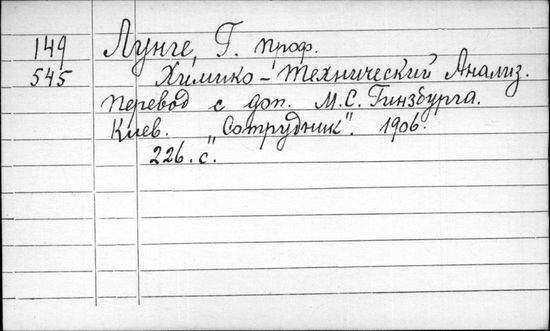 149 Лунге, Г. проф.
545 Химико-Технический Анализ.
Перевод с доп. М.С. Гинзбурга.
Киев. "Сотрудник". 1906.
226. с.